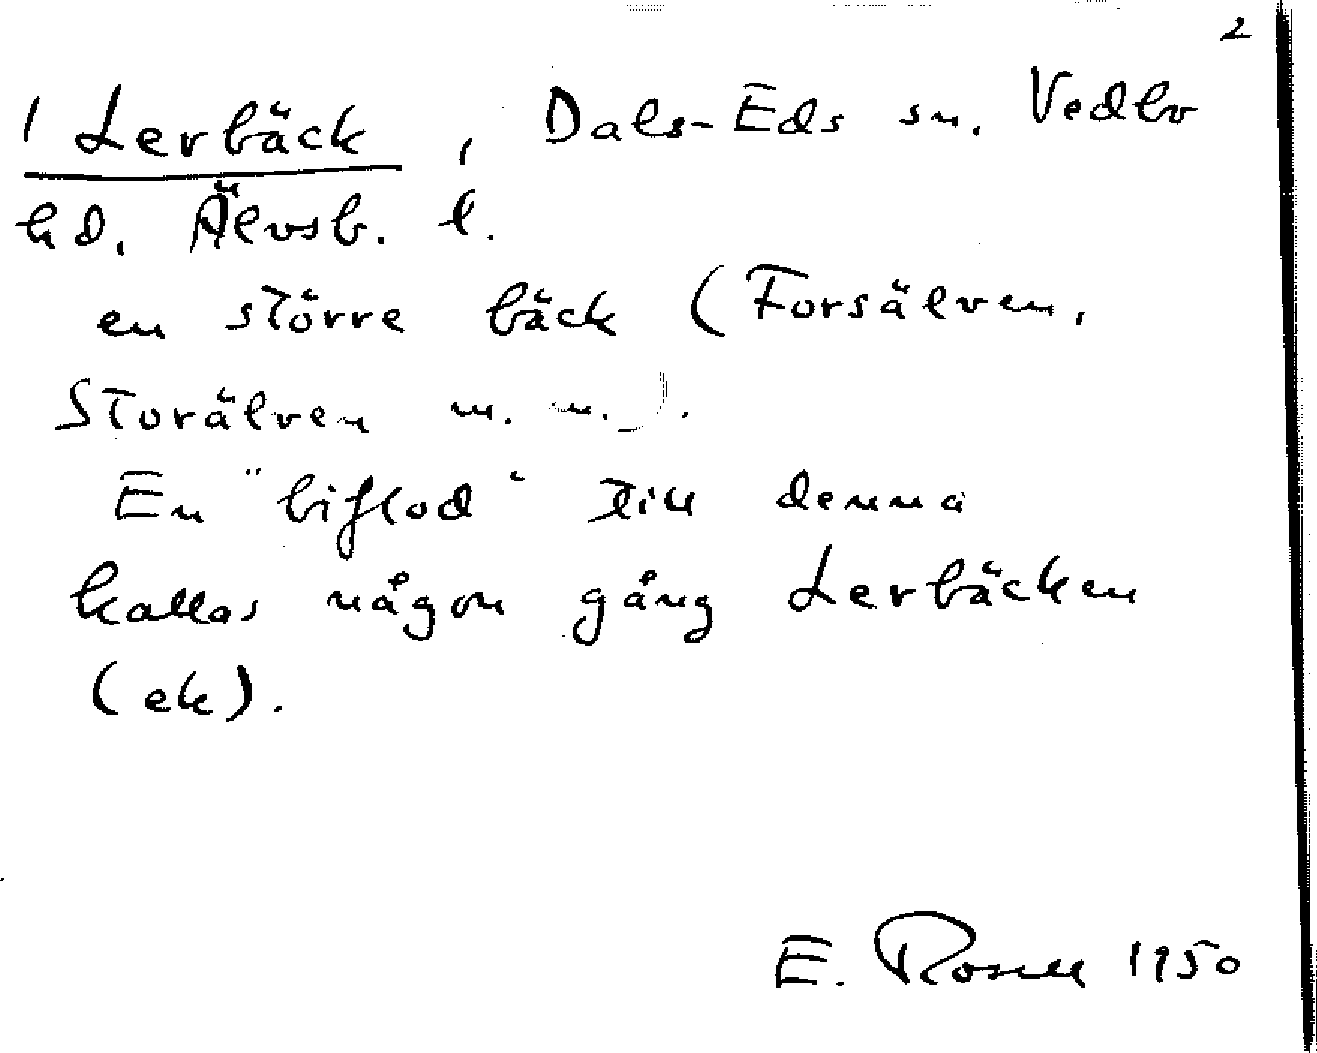 2
1 Lerbäck, Dals-Eds sn. Vedbo
hd. Älvsb. l.
en större bäck (Forsälven,
Storälven m. m.).
En "biflod" till denna
kallas någon gång Lerbäcken
(ek).
E. Rosell 1950